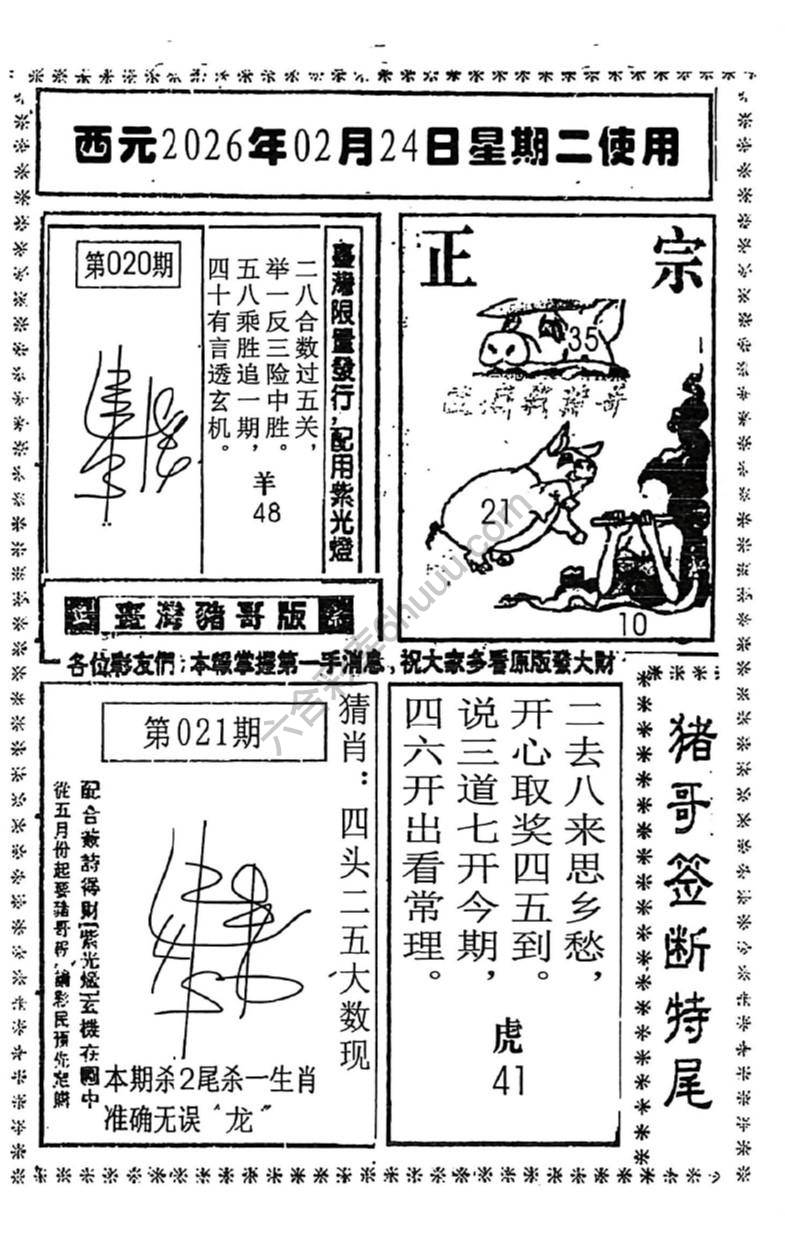 西元2026年02月24日星期二使用
第020期
二八合数过五关，
举一反三险中胜。
五八乘胜追一期，
四十有言透玄机。
羊
48
臺灣限量發行，配用紫光燈
正宗
35
21
10
臺灣豬哥版
各位彩友們：本報掌握第一手消息，祝大家多看原版發大財
第021期
猜肖：四头二五大数现
從五月份起要豬哥報，請彩民預先定購
本期杀2尾杀一生肖
准确无误“龙”
二去八来思乡愁，
开心取奖四五到。
说三道七开今期，
四六开出看常理。
虎
41
猪哥签断特尾
六合彩库6huuu.com